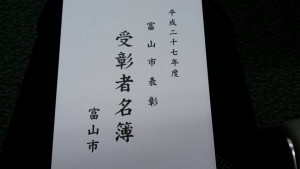 平成二十七年度
富山市表彰
受彰者名簿
富山市